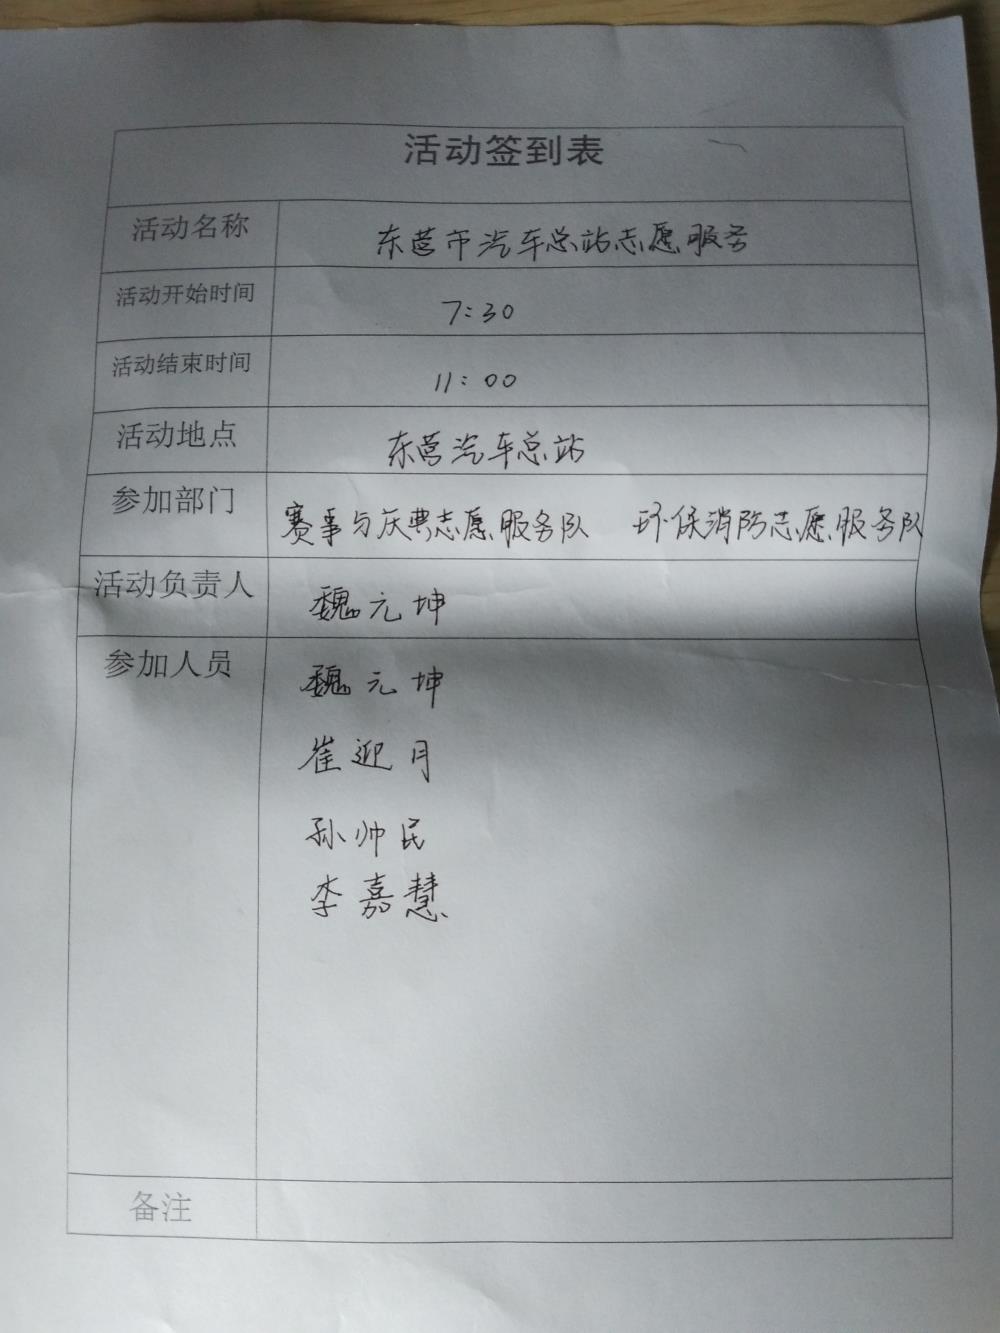 活动签到表
活动名称 东营市汽车总站志愿服务
活动开始时间 7:30
活动结束时间 11:00
活动地点 东营汽车总站
参加部门 赛事与庆典志愿服务队 环保消防志愿服务队
活动负责人 魏元坤
参加人员 魏元坤
崔迎月
孙帅民
李嘉慧
备注